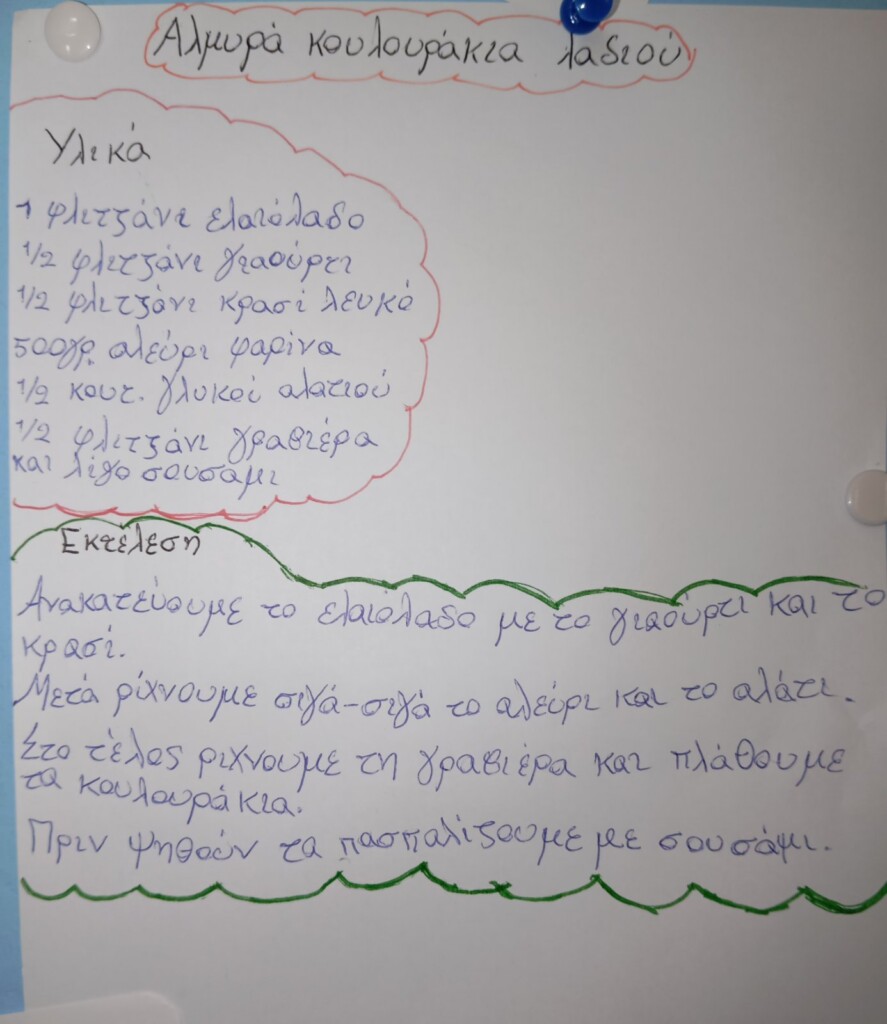 Αλμυρά κουλουράκια λαδιού
Υλικά
1 φλιτζάνι ελαιόλαδο
1/2 φλιτζάνι γιαούρτι
1/2 φλιτζάνι κρασί λευκό
500γρ. αλεύρι φαρίνα
1/2 κουτ. γλυκού αλατιού
1/2 φλιτζάνι γραβιέρα
και λίγο σουσάμι
Εκτέλεση
Ανακατεύουμε το ελαιόλαδο με το γιαούρτι και το
κρασί.
Μετά ρίχνουμε σιγά-σιγά το αλεύρι και το αλάτι.
Στο τέλος ριχνουμε τη γραβιέρα και πλάθουμε
τα κουλουράκια.
Πριν ψηθούν τα πασπαλίζουμε με σουσάμι.